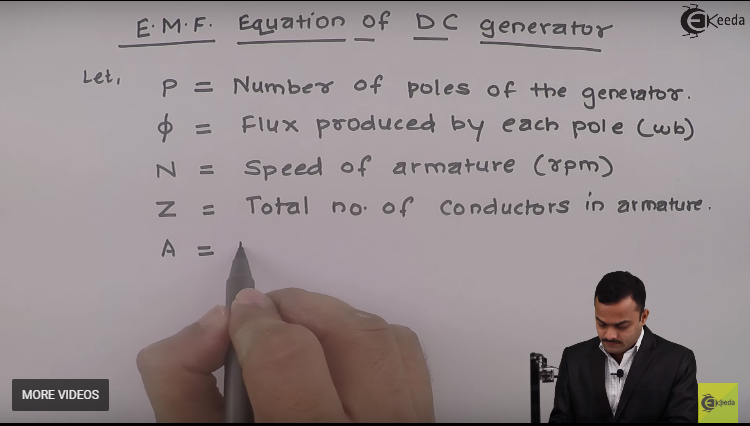 E.M.F. Equation of DC generator
EKeeda
Let,
P = Number of poles of the generator.
ϕ = Flux produced by each pole (wb)
N = Speed of armature (rpm)
Z = Total no. of conductors in armature.
A =
MORE VIDEOS
EKeeda